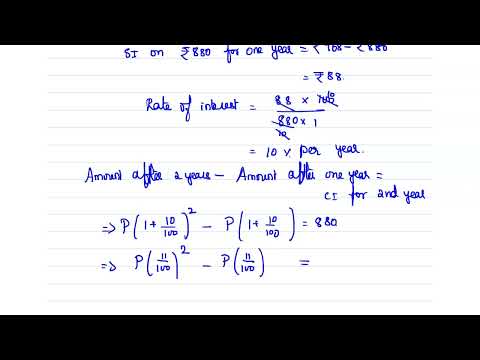 SI on ₹880 for one year = ₹968 - ₹880
= ₹88.
Rate of interest = 88 × 100 10 / 880 × 1 10
= 10 % per year.
Amount after 2 years - Amount after one year =
CI for 2nd year
=> P(1 + 10/100)^2 - P(1 + 10/100) = 880
=> P(11/100)^2 - P(11/100) =